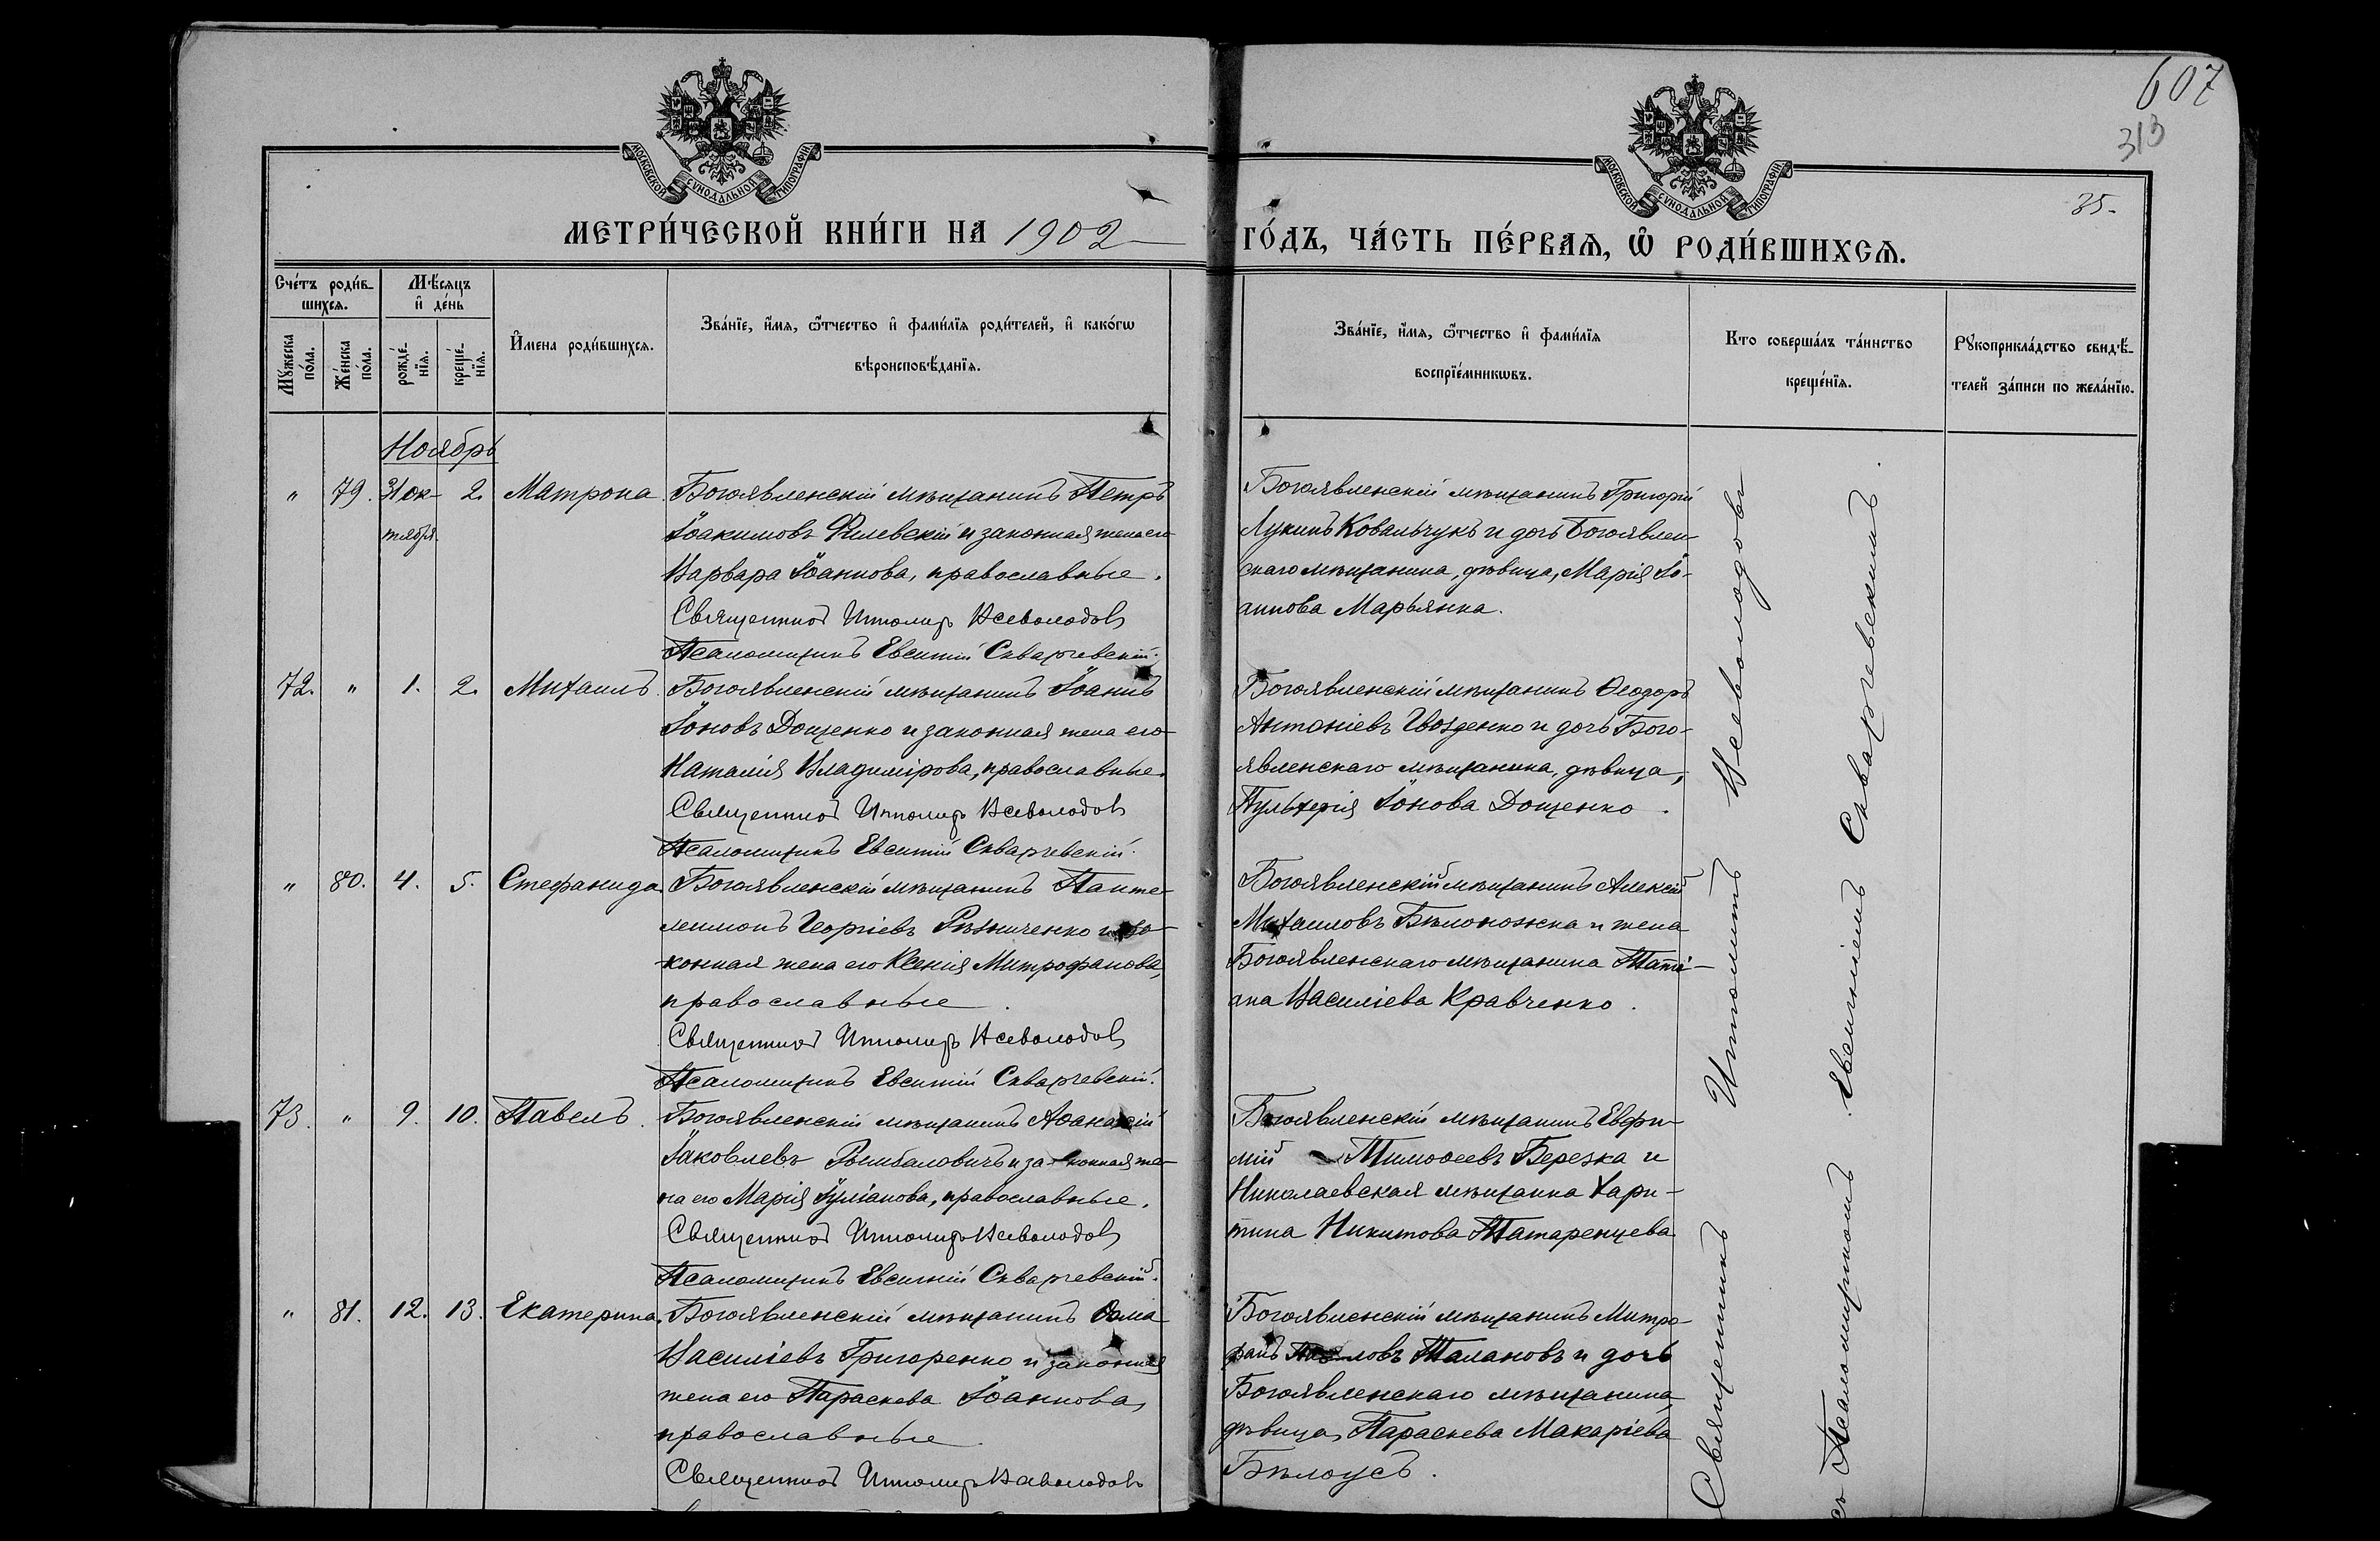 607
313
35.
МОСКОВСКОЙ СѴНОДАЛЬНОЙ ТИПОГРАФІИ
МОСКОВСКОЙ СѴНОДАЛЬНОЙ ТИПОГРАФІИ
МЕТРИ́ЧЕСКОЙ КНИ́ГИ НА 1902
ГО́ДЪ, ЧА́СТЬ ПЕ́РВАѦ, Ѽ РОДИ́ВШИХСѦ.
Сче́тъ роди́вшихсѧ.
Мꙋ́жеска по́ла.
Же́нска по́ла.
Мѣ́сяцъ и҆ де́нь
рожде́нїѧ.
креще́нїѧ.
И҆́мена роди́вшихсѧ.
Зва́нїе, и҆́мѧ, ѻ҆́тчество и҆ фами́лїѧ роди́телей, и҆ како́гѡ
вѣроисповѣ́данїѧ.
Зва́нїе, и҆́мѧ, ѻ҆́тчество и҆ фами́лїѧ
воспрїе́мникѡвъ.
Кто соверша́лъ та́инство
креще́нїѧ.
Рꙋкоприкла́дство свидѣ́-
телей за́писи по жела́нїю.
Ноябрь
" 79. 31 ок- 2. Матрона Богоявленскій мѣщанинъ Петръ
тября. Іоакимовъ Филевскій и законная жена его
Варвара Іоаннова, православные.
Священникъ Ипполитъ Всеволодовъ
Псаломщикъ Евсигній Скваржевскій.
Богоявленскій мѣщанинъ Григорій
Лукинъ Ковальчукъ и дочь Богоявлен-
скаго мѣщанина, дѣвица, Марія Іо-
аннова Марьянка.
72. " 1. 2. Михаилъ Богоявленскій мѣщанинъ Іоаннъ
Іоновъ Доценко и законная жена его
Наталія Владимірова, православные.
Священникъ Ипполитъ Всеволодовъ
Псаломщикъ Евсигній Скваржевскій.
Богоявленскій мѣщанинъ Ѳеодоръ
Антоніевъ Гвозденко и дочь Бого-
явленскаго мѣщанина, дѣвица,
Пульхерія Іонова Доценко.
" 80. 4. 5. Стефанида Богоявленскій мѣщанинъ Панте-
леимонъ Георгіевъ Рѣзниченко и за-
конная жена его Ксенія Митрофанова,
православные.
Священникъ Ипполитъ Всеволодовъ
Псаломщикъ Евсигній Скваржевскій.
Богоявленскій мѣщанинъ Алексій
Михаиловъ Бѣлоножка и жена
Богоявленскаго мѣщанина Татi-
ана Василіева Кравченко.
73. " 9. 10. Павелъ. Богоявленскій мѣщанинъ Аѳанасій
Іаковлевъ и законная же-
на его Марія Іуліанова, православные.
Священникъ Ипполитъ Всеволодовъ
Псаломщикъ Евсигній Скваржевскій.
Богоявленскій мѣщанинъ Евфи-
мій Тимоѳеевъ Березка и
Николаевская мѣщанка Хари-
тина Никитова Татаренцева
" 81. 12. 13. Екатерина. Богоявленскій мѣщанинъ Ѳома
Василіевъ Григоренко и законная
жена его Параскева Іоаннова,
православные.
Священникъ Ипполитъ Всеволодовъ
Богоявленскій мѣщанинъ Митро-
фанъ Талановъ и дочь
Богоявленскаго мѣщанина,
дѣвица, Параскева Макаріева
Бѣлоусъ.
Священникъ Ипполитъ Всеволодовъ
съ Псаломщикомъ Евсигніемъ Скваржевскимъ.